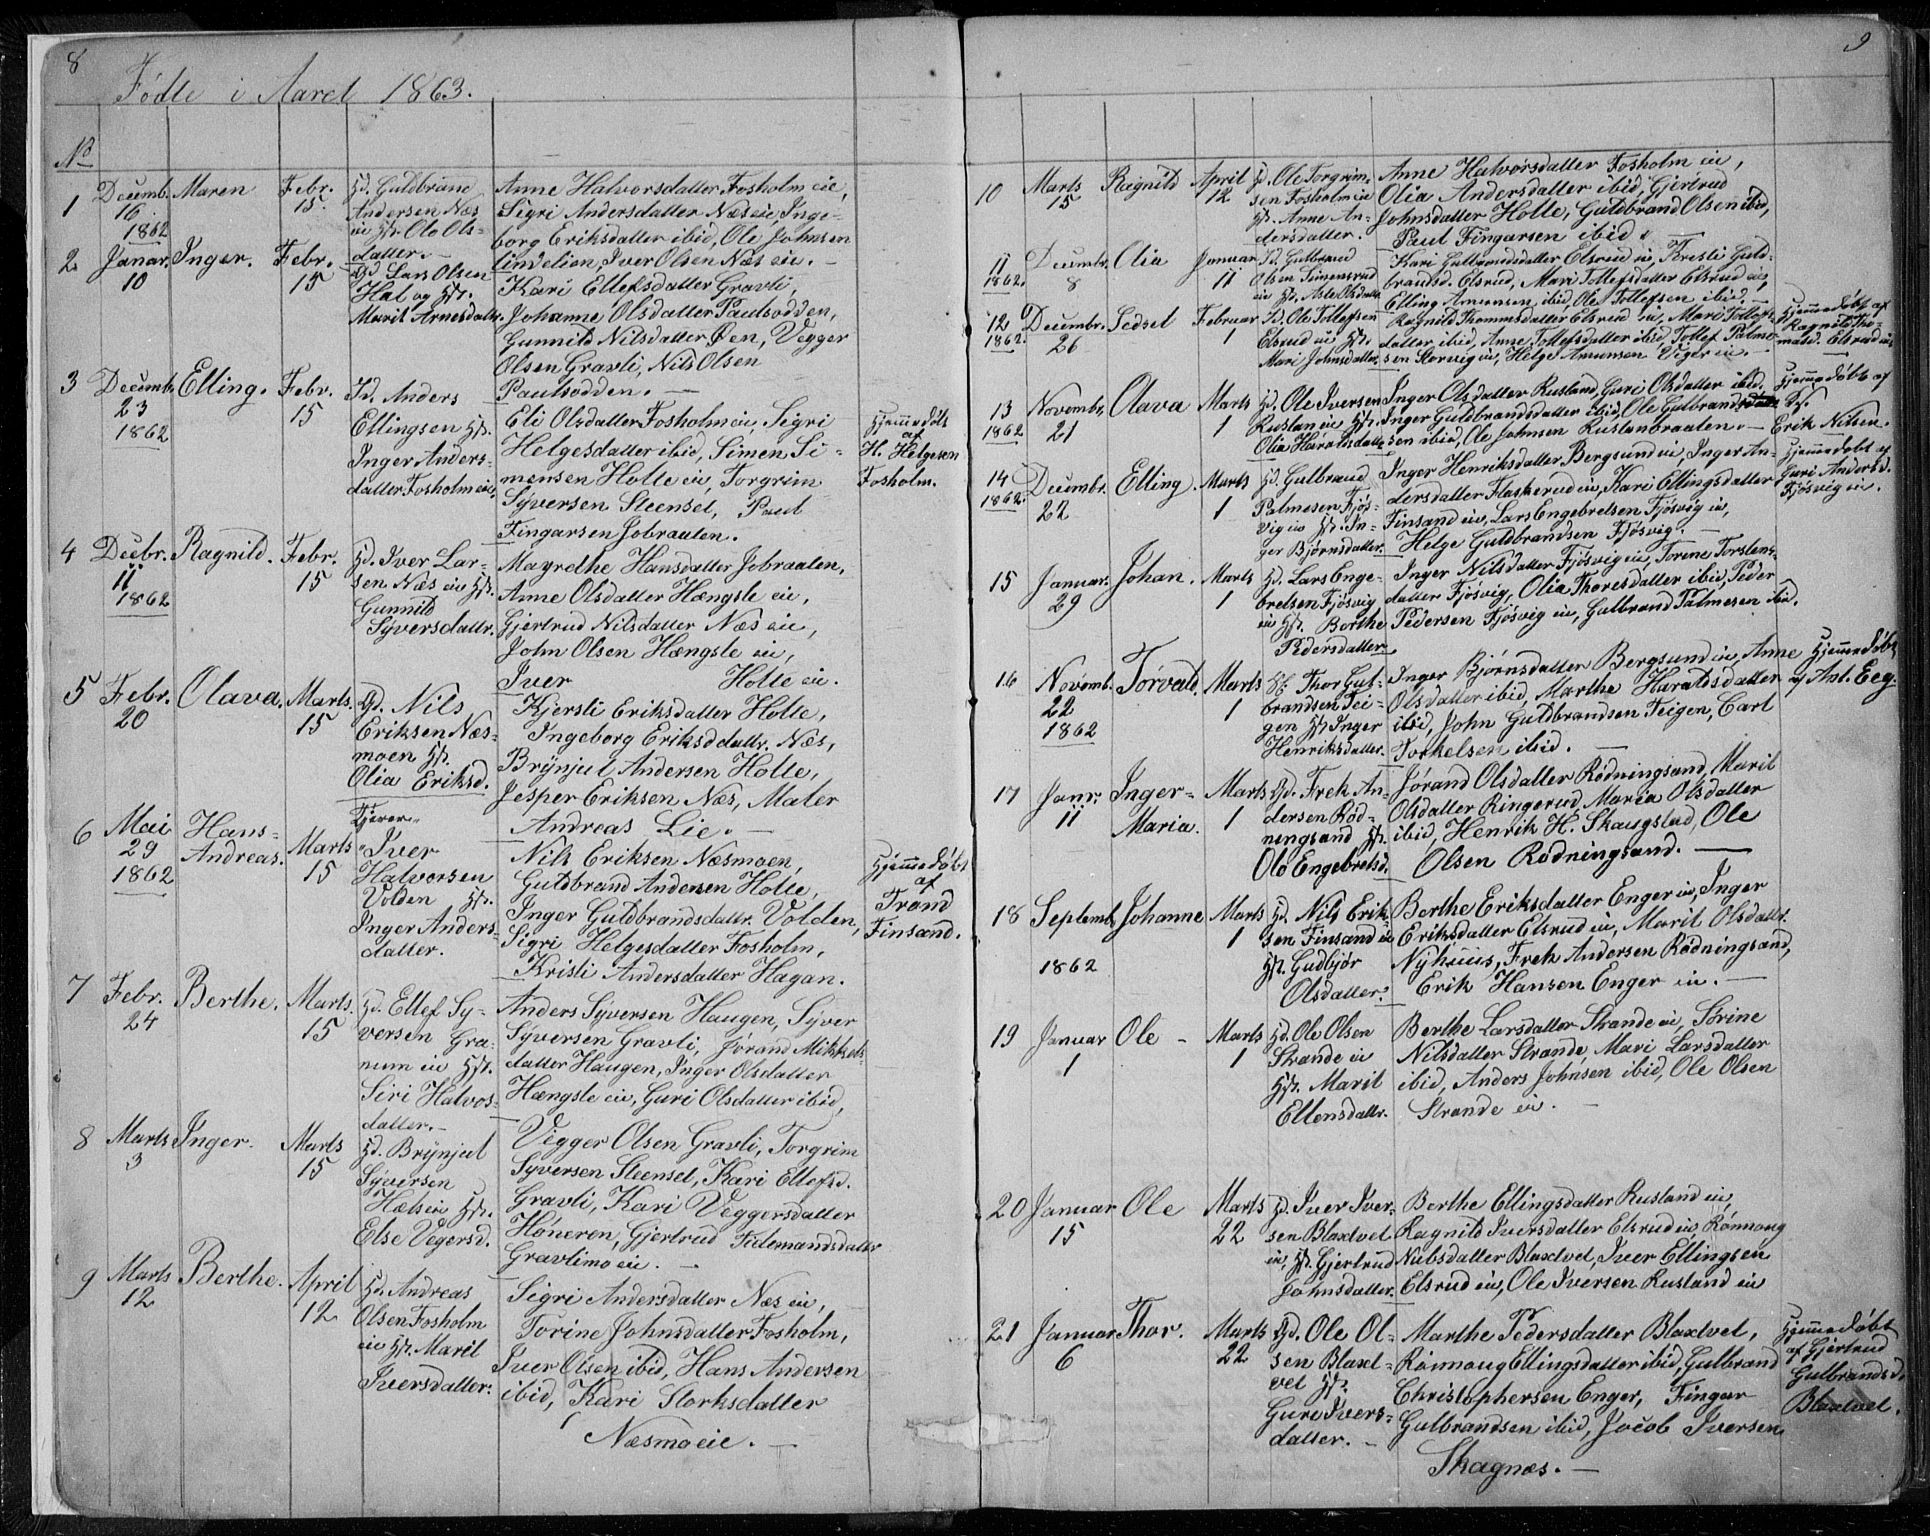 8
Fødte i Aaret 1863.
No
1 Decemb. 16 1862 Maren Febr. 15
Gd. Guldbrand
Andersen Næs
eie Hst. Olo Ols-
datter.
Anne Halvorsdatter Fosholm eie,
Sigri Andersdatter Næs eie Inge-
borg Eriksdatter ibid, Ole Johnsen
Lindelien, Iver Olsen Næs eie. —
2 Januar. 10 Inger. Febr. 15
Gd Lars Olsen
Hal og Hst.
Marit Arnesdattr.
Kari Ellefsdatter Gravli,
Johanne Olsdatter Paulsodden,
Gunnild Nilsdatter Øen, Vegger
Olsen Gravli, Nils Olsen
Paulsodden. —
3 Decemb. 23 1862 Elling. Febr. 15
Id. Anders
Ellingsen Hst.
Inger Anders-
datter Fosholm eie
Eli Olsdatter Fosholm eie, Sigri
Helgesdatter ibid, Simen Si-
mensen Holte eie, Torgrim
Syversen Steenset, Paul
Fingarsen Jobraaten.
Hjemmedöbt
af
H. Helgesen
Fosholm.
4 Decbr. 11 1862 Ragnild. Febr. 15
Gd. Iver Lar-
sen Næs eie Hst.
Gunnild
Syversdattr.
Magrethe Hansdatter Jobraaten,
Anne Olsdatter Hængsle eie,
Gjertrud Nilsdatter Næs eie,
John Olsen Hængsle eie,
Iver Holte eie.
5 Febr. 20 Olava. Marts. 15
Gd. Nils
Eriksen Næs-
moen Hst.
Olia Eriksd.
Kjersti Eriksdatter Holte,
Ingeborg Eriksddattr. Næs,
Brynjul Andersen Holte,
Jesper Eriksen Næs, Maler
Andreas Lie. —
6 Mai 29 1862 Hans-
Andreas. Marts 15
Iver
Halvorsen
Volden Hst.
Inger Anders-
datter.
Nils Eriksen Næsmoen,
Guldbrand Andersen Holte,
Inger Guldbrandsdattr. Volden,
Sigri Helgesdatter Fosholm,
Kristi Andersdatter Hagan.
Hjemmedöbt
af
Trond
Finsand.
7 Febr. 24 Berthe. Marts. 15
Gd. Ellef Sy-
versen Gra-
num eie Hst.
Siri Halvos-
datter.
Anders Syversen Haugen, Syver
Syversen Gravli, Jørand Mikkels-
datter Haugen, Inger Olsdatter
Hængsle eie, Guri Olsdatter ibid,
8 Marts 3 Inger. Marts 15
Gd. Brynjul
Syversen
Hælsen Hst.
Else Vegersd.
Vegger Olsen Gravli, Torgrim
Syversen Steensel, Kari Ellefsd.
Gravli, Kari Veggersdatter
Høneren, Gjertrud Tidemandsdatter
Gravlimo eie. —
9 Marts 12 Berthe. April 12
Gd. Andreas
Olsen Fosholm
eie Hst. Marit
Iversdatter.
Sigri Andersdatter Næs eie,
Torine Johnsdatter Fosholm,
Iver Olsen ibid, Hans Andersen
ibid, Kari Storksdatter
Næsmoeie. —
9
10 Marts 15 Ragnild April 12
Gd. Ole Torgrim-
sen Fosholm eie
Hst. Anne An-
dersdatter.
Anne Halvorsdatter Fosholm eie,
Olia Andersdatter ibid, Gjertrud
Johnsdatter Holte, Guldbrand Olsen ibid,
Paul Fingarsen ibid. —
11 1862. Decembr. 8 Olia Januar 11
Id. Gulbrand
Olsen Simensrud
eie Hst. Asle Olsdattr.
Kari Gulbrandsdatter Elsrud eie, Kristi Guld-
brandsd. Elsrud, Mari Tollefsdatter Elsrud eie,
Elling Amunsen ibid, Ole Tollefsen ibid. —
12 1862. Decembr. 26 Sedsel Februar 1
Id. Ole Tollefsen
Elsrud eie Hst.
Mari Johnsdatter.
Ragnild Thommsdatter Elsrud eie, Mari Tollefs-
datter ibid, Anne Tollefsdatter ibid, Tollef Palme-
sen Storvig eie, Helge Amunsen Viger eie. —
Hjemmedöbt af
Ragnild Tho-
masd. Elsrud eie
13 1862 Novembr. 21 Olava Marts 1
Gd. Ole Iversen
Rusland eie Hst.
Olia Haraldsdatter
Inger Olsdatter Rusland, Guri Olsdatter ibid,
Inger Guldbrandsdatter ibid, Ole Gulbrand-
sen ibid, Ole Johnsen Ruslanbraaten. —
Hjemmedöbt af
Erik Nilsen.
14 1862. Decembr. 22 Elling. Marts 1
Gd. Gulbrand
Palmesen Fjös-
vig eie Hst. In-
ger Bjørnsdatter.
Inger Henriksdatter Bergsund eie, Inger An-
dersdatter Flaskerud eie, Kari Ellingsdatter
Finsand eie, Lars Engebretsen Fjösvig eie,
Helge Guldbrandsen Fjösvig. —
Hjemmedöbt af
Guri Andersd.
Fjösvig eie.
15 Januar. 29 Johan. Marts 1
Gd. Lars Enge-
bretsen Fjösvig
eie Hst. Berthe
Pedersdatter
Inger Nilsdatter Fjösvig eie, Torine Torstens-
datter Fjösvig, Olia Thoresdatter ibid, Peder
Pedersen Fjösvig eie, Gulbrand Palmesen ibid.
16 Novemb. 22 1862 Torvald. Marts 1
Thor Gul-
brandsen Tei-
gen Hst Inger
Henriksdatter.
Inger Bjørnsdatter Bergsund eie, Anne
Olsdatter ibid, Marthe Haraldsdatter
ibid, John Guldbrandsen Teigen, Carl
Torkelsen ibid. —
Hjemmedöbt
af Ant. Eeg.
17 Janr. 11 Inger-
Maria. Marts 1
Gd. Freh An-
dersen Röd-
ningsand Hst.
Olo Engebretsd.
Jørand Olsdatter Rödningsand, Marit
Olsdatter Ringerud, Maria Olsdatter
ibid, Henrik H. Skaugstad, Ole
Olsen Rödningsand. —
18 Septemb. 1862 Johanne Marts 1
Gd. Nils Erik-
sen Finsand eie
Hst. Gudbjör
Olsdatter.
Berthe Eriksdatter Enger eie, Inger
Eriksdatter Elsrud eie, Marit Olsdattr.
Nyhuus, Freh Andersen Rödningsand,
Erik Hansen Enger eie. —
19 Januar 1 Ole - Marts 1
Gd. Ole Olsen
Strande eie
Hst. Marit
Ellensdattr.
Berthe Larsdatter Strande eie, Sörine
Nilsdatter Strande, Mari Larsdatter
ibid, Anders Johnsen ibid, Ole Olsen
Strande eie. —
20 Januar 15 Ole Marts 22
Gd. Iver Iver-
sen Blaxtvet
eie, Hst. Gjertrud
Johnsdatter.
Berthe Ellingsdatter Rusland eie,
Ragnild Iversdatter Elsrud eie Rönnoug
Nubsdatter Blaxtvet, Iver Ellingsen
Elsrud eie, Ole Iversen Rusland eie
21 Januar 6 Thor. Marts 22
Gd. Ole Ol-
sen Blaxt-
vet Hst.
Gure Ivers-
datter. -
Marthe Pedersdatter Blaxtvet,
Rönnoug Ellingsdatter ibid, Gulbrand
Christophersen Enger, Fingar
Gulbrandsen ibid, Jocob Iversen
Skagnæs. —
Hjemmedöbt
af Gjertrud
Gulbrandsd.
Blaxtvet.